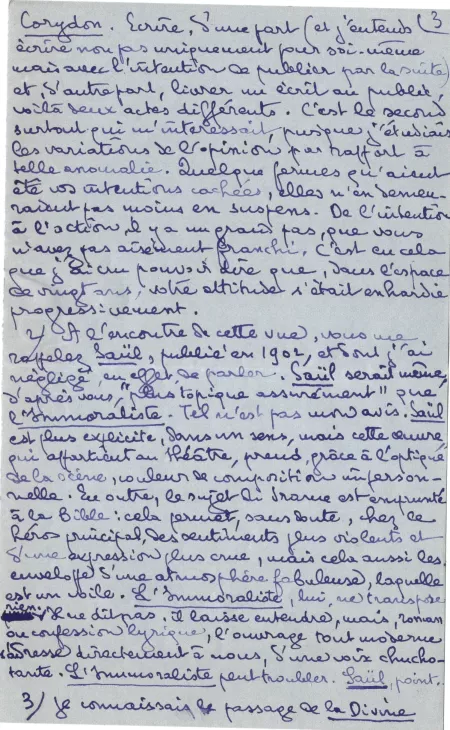 (3
Corydon. Ecrire, d'une part (et j'entends
écrire non pas uniquement pour soi-même
mais avec l'intention de publier par la suite)
et d'autre part, livrer un écrit au public,
voilà deux actes différents. C'est le second
surtout qui m'intéressait, puisque j'étudiais
les variations de l'opinion par rapport à
telle anomalie. Quelque fermes qu'aient
été vos intentions cachées, elles n'en demeu-
raient pas moins en suspens. De l'intention
à l'action, il y a un grand pas, que vous
n'avez pas aisément franchi. C'est en cela
que j'ai cru pouvoir dire que, dans l'espace
de vingt ans, votre attitude s'était enhardie
progressivement.
2) A l'encontre de cette vue, vous me
rappelez Saül, publié en 1902, et dont j'ai
négligé, en effet, de parler. Saül serait même,
d'après vous, "plus topique assurément" que
l'Immoraliste. Tel n'est pas mon avis. Saül
est plus explicite, dans un sens, mais cette œuvre,
qui appartient au théâtre, prend, grâce à l'optique
de la scène, couleur de composition imperson-
nelle. En outre, le sujet du drame est emprunté
à la Bible : cela permet, sans doute, chez le
héros principal, des sentiments plus violents et
d'une expression plus crue, mais cela aussi les
enveloppe d'une atmosphère fabuleuse, laquelle
est un voile. L'Immoraliste, lui, ne transpose
rien. Il ne dit pas. Il laisse entendre, mais, roman
ou confession lyrique, l'ouvrage tout moderne
s'adresse directement à nous, d'une voix chucho-
tante. L'Immoraliste peut troubler. Saül, point.
3) Je connaissais le passage de la Divine